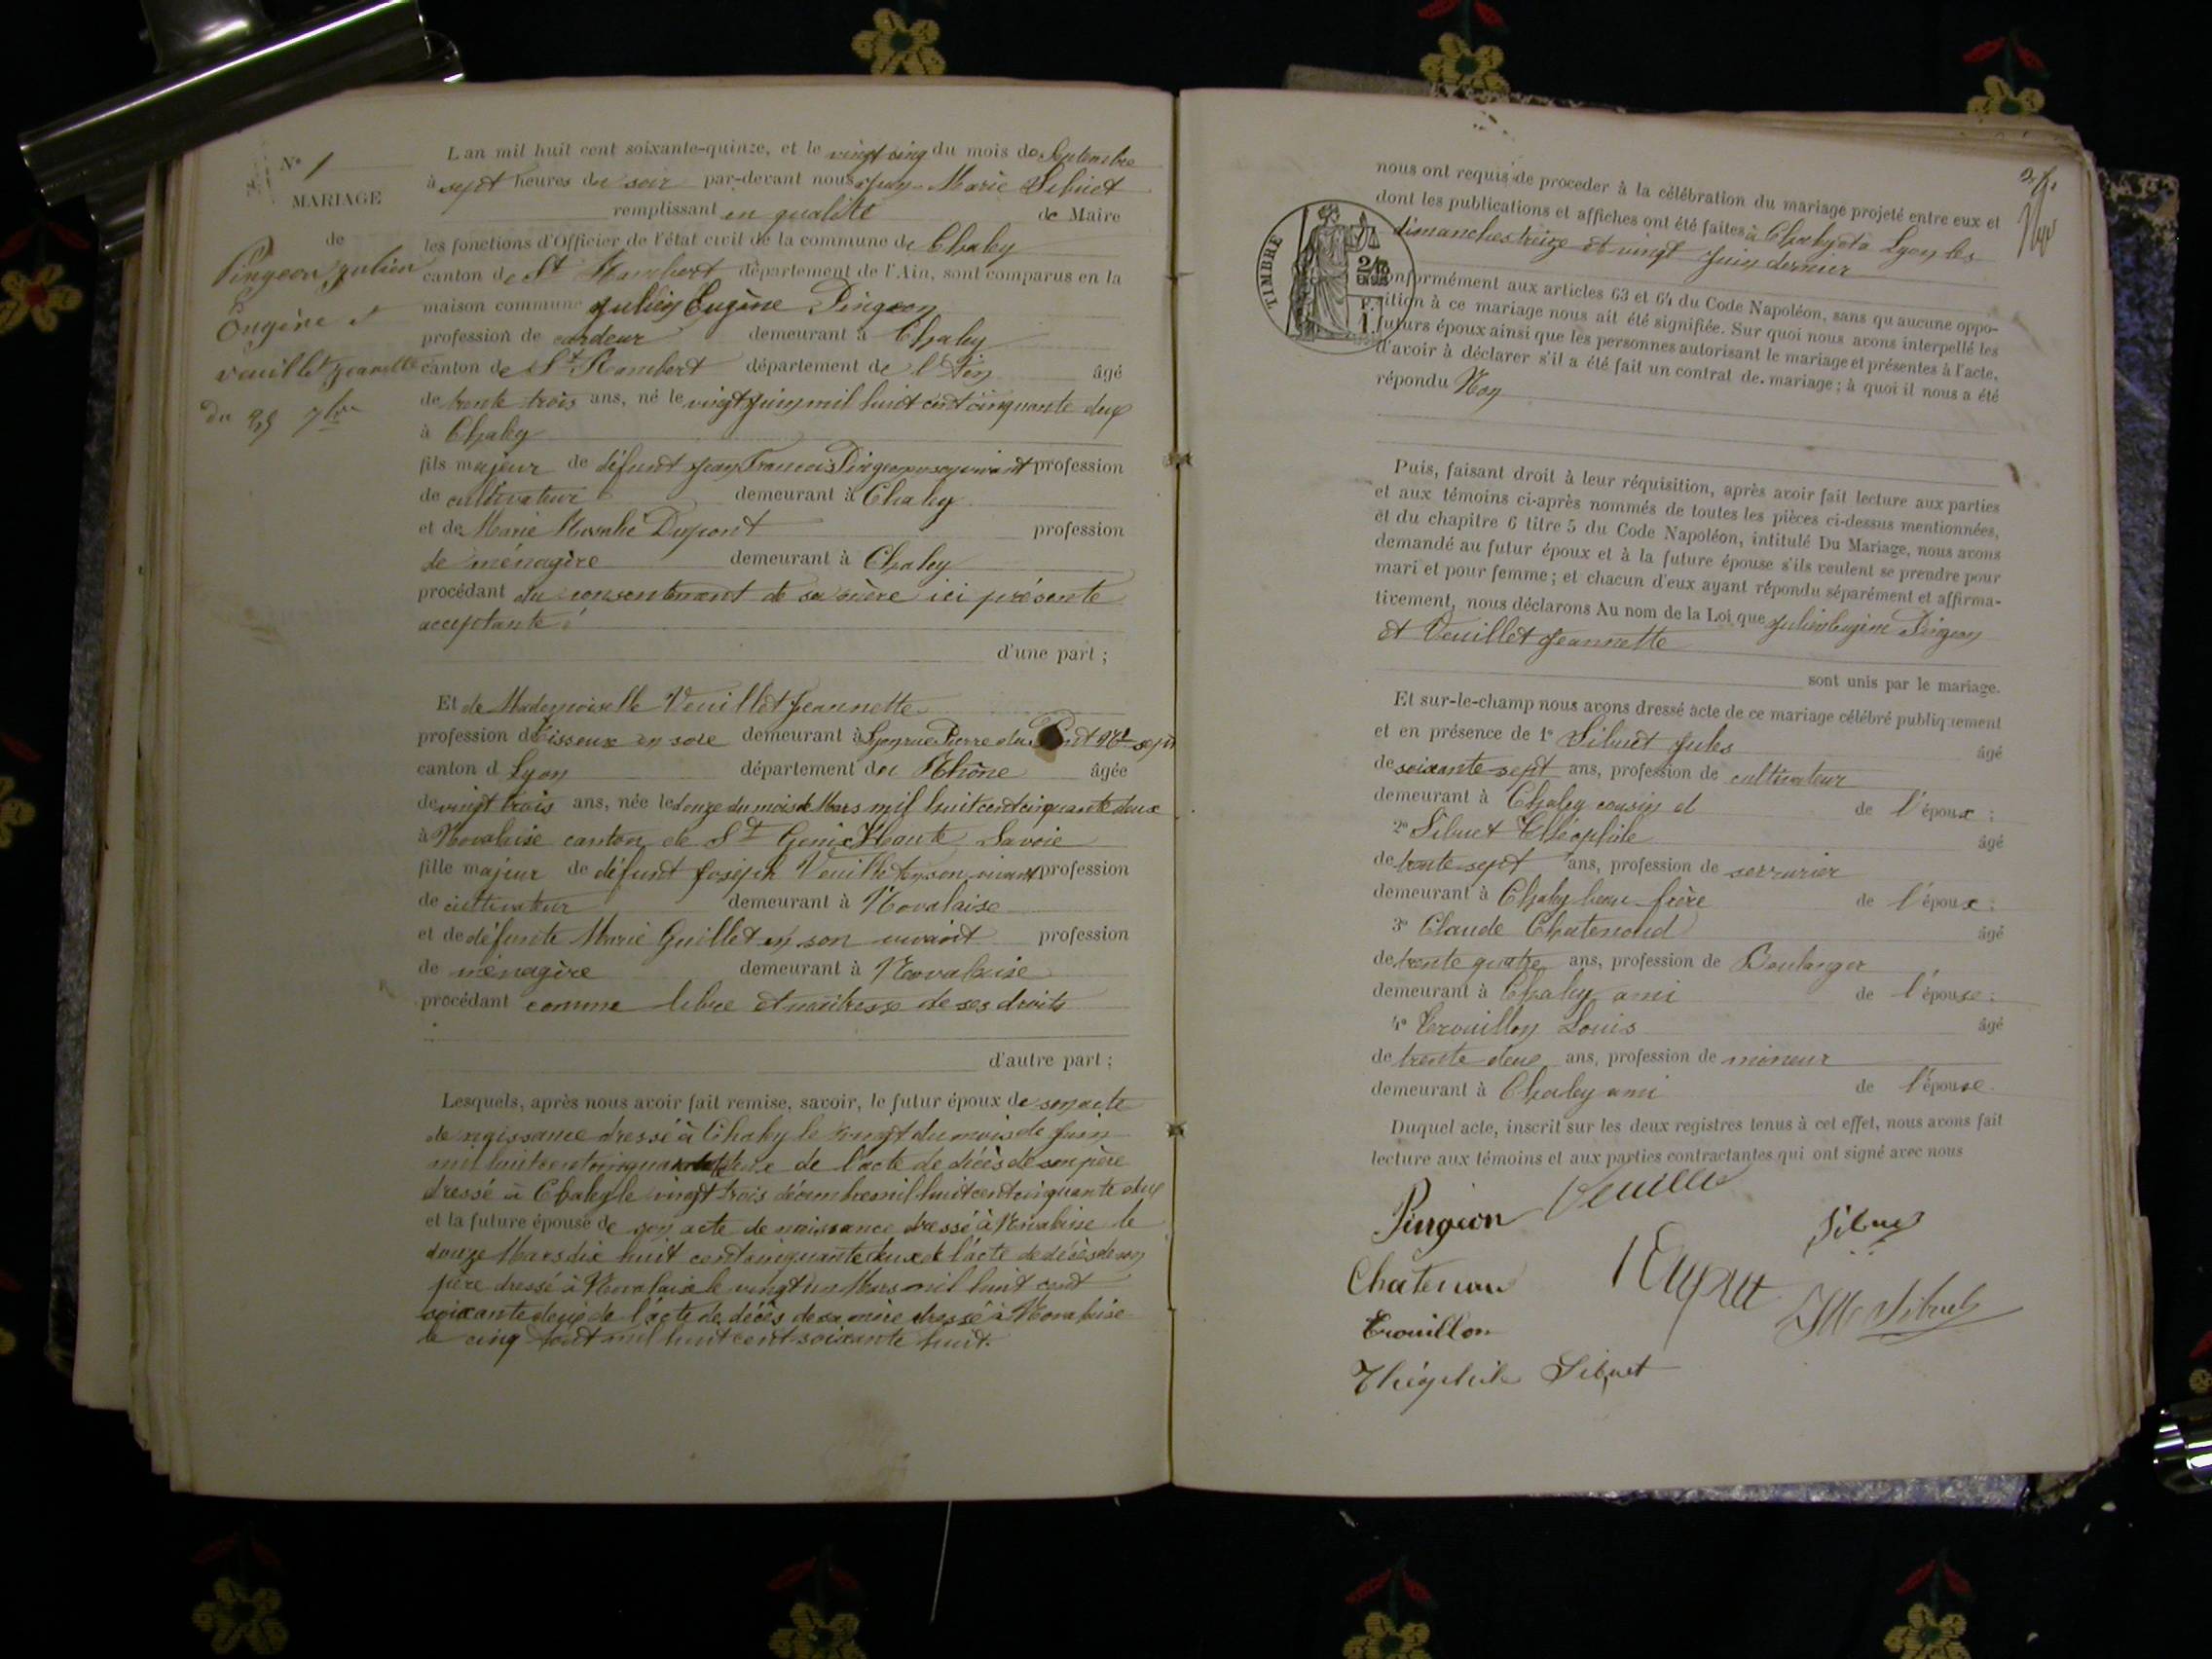 N° 1
MARIAGE
de
Pingeon Julien
Eugène et
veuillet jeanette
du 25 7bre
L'an mil huit cent soixante-quinze, et le vingt cinq du mois de Septembre
à sept heures du soir par-devant nous Jean Marie Sibuet
remplissant en qualité de Maire
les fonctions d'Officier de l'état civil de la commune de Chaley
canton de St Rambert département de l'Ain, sont comparus en la
maison commune Julien Eugène Pingeon
profession de cardeur demeurant à Chaley
canton de St Rambert département de l'Ain âgé
de trente trois ans, né le vingt juin mil huit cent cinquante deux
à Chaley
fils majeur de défunt Jean François Pingeon en son vivant profession
de cultivateur demeurant à Chaley
et de Marie Dupont profession
de ménagère demeurant à Chaley
procédant du consentement de sa mère ici présente
acceptante
d'une part ;
Et de Mademoiselle Veuillet Jeannette
profession de Tisseuse en soie demeurant à Lyon rue Pierre du sept
canton d Lyon département du Rhône âgée
de vingt trois ans, née le douze du mois de Mars mil huit cent cinquante deux
à Novalaise canton de St Genix Haute Savoie
fille majeur de défunt Joseph Veuillet en son vivant profession
de cultivateur demeurant à Novalaise
et de défunte Marie Guillet en son vivant profession
de ménagère demeurant à Novalaise
procédant comme libre et maitresse de ses droits
d'autre part ;
Lesquels, après nous avoir fait remise, savoir, le futur époux de son acte
de naissance dressé à Chaley le vingt du mois de Juin
mil huit cent cinquante deux de l'acte de décès de son père
dressé à Chaley le vingt trois décembre mil huit cent cinquante deux
et la future épouse de son acte de naissance dressé à Novalaise le
douze Mars dix huit cent cinquante deux de l'acte de décès de son
père dressé à Novalaise le vingt un Mars mil huit cent
soixante deux de l'acte de décès de sa mère dressé à Novalaise
le cinq août mil huit cent soixante huit.
nous ont requis de procéder à la célébration du mariage projeté entre eux et
dont les publications et affiches ont été faites à Chaley et à Lyon les
dimanches treize et vingt Juin dernier
TIMBRE
conformément aux articles 63 et 64 du Code Napoléon, sans qu'aucune oppo-
sition à ce mariage nous ait été signifiée. Sur quoi nous avons interpellé les
futurs époux ainsi que les personnes autorisant le mariage et présentes à l'acte,
d'avoir à déclarer s'il a été fait un contrat de mariage ; à quoi il nous a été
répondu Non
Puis, faisant droit à leur réquisition, après avoir fait lecture aux parties
et aux témoins ci-après nommés de toutes les pièces ci-dessus mentionnées,
et du chapitre 6 titre 5 du Code Napoléon, intitulé Du Mariage, nous avons
demandé au futur époux et à la future épouse s'ils veulent se prendre pour
mari et pour femme ; et chacun d'eux ayant répondu séparément et affirma-
tivement, nous déclarons Au nom de la Loi que Julien Eugène Pingeon
et Veuillet Jeannette
sont unis par le mariage.
Et sur-le-champ nous avons dressé acte de ce mariage célébré publiquement
et en présence de 1° Sibuet Jules âgé
de soixante sept ans, profession de cultivateur
demeurant à Chaley cousin d de l'époux ;
2° Sibuet Théophile âgé
de trente sept ans, profession de serrurier
demeurant à Chaley beau frère de l'époux ;
3° Claude Chatenoud âgé
de trente quatre ans, profession de Boulanger
demeurant à Chaley ami de l'épouse ;
4° Trouillon Louis âgé
de trente deux ans, profession de mineur
demeurant à Chaley ami de l'épouse
Duquel acte, inscrit sur les deux registres tenus à cet effet, nous avons fait
lecture aux témoins et aux parties contractantes qui ont signé avec nous
Pingeon Veuillet
Sibuet
Chatenou
Trouillon
JM Sibuet
Théophile Sibuet